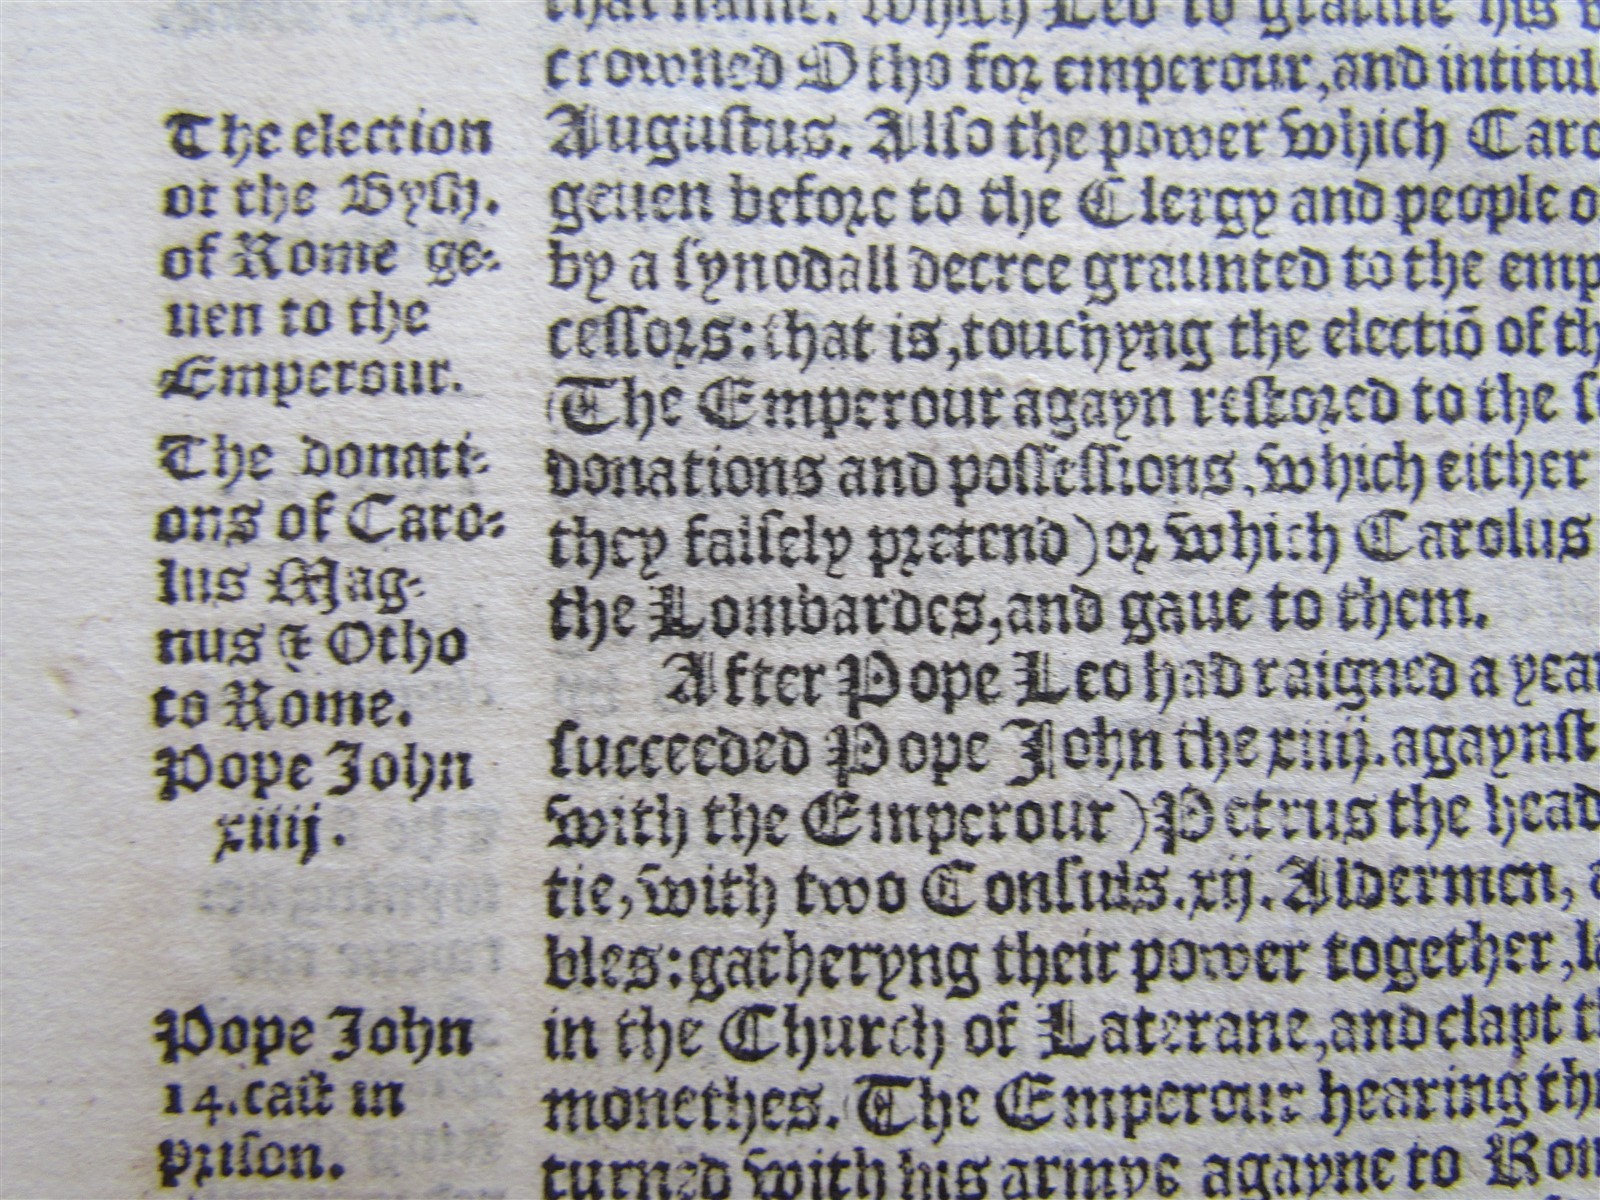 The election
of the Bysh.
of Rome ge-
uen to the
Emperour.
The donati-
ons of Caro-
lus Mag-
nus & Otho
to Rome.
Pope John
xiiij.
Pope John
14. cast in
prison.
that name. Which Leo to gratifie his
crowned Otho for emperour, and intitul
Augustus. Also the power which Caro
geuen before to the Clergy and people o
by a synodall decree graunted to the emp
cessors: that is, touchyng the electiō of th
The Emperour agayn restored to the s
donations and possessions, which either
they falsely pretend) or which Carolus
the Lombardes, and gaue to them.
After Pope Leo had raigned a yea
succeeded Pope John the xiiij. agaynst
with the Emperour) Petrus the head
tie, with two Consuls. xij. Aldermen,
bles: gatheryng their power together, l
in the Church of Laterane, and clapt t
monethes. The Emperour hearing th
turned with his armye agayne to Rom